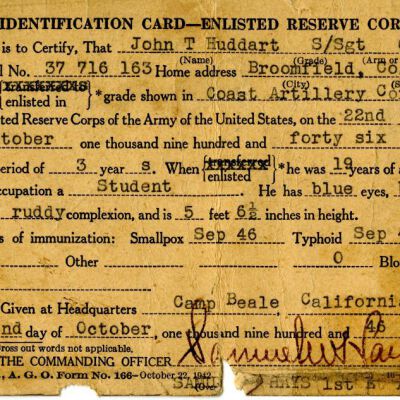 IDENTIFICATION CARD—ENLISTED RESERVE COR
is to Certify, That John T Huddart S/Sgt
(Grade) (Arm or
l No. 37 716 163 Home address Broomfield, Co
(City) (S
enlisted in }*grade shown in Coast Artillery Co
ted Reserve Corps of the Army of the United States, on the 22nd
tober one thousand nine hundred and forty six
period of 3 year s. When { enlisted }*he was 19 years of a
ccupation a Student He has blue eyes,
ruddy complexion, and is 5 feet 6½ inches in height.
s of immunization: Smallpox Sep 46 Typhoid Sep 4
Other 0 Blo
Given at Headquarters Camp Beale, California
nd day of October, one thousand nine hundred and 46
ross out words not applicable.
THE COMMANDING OFFICER
., A. G. O. Form No. 166—October 22, 1942
HAYS 1st